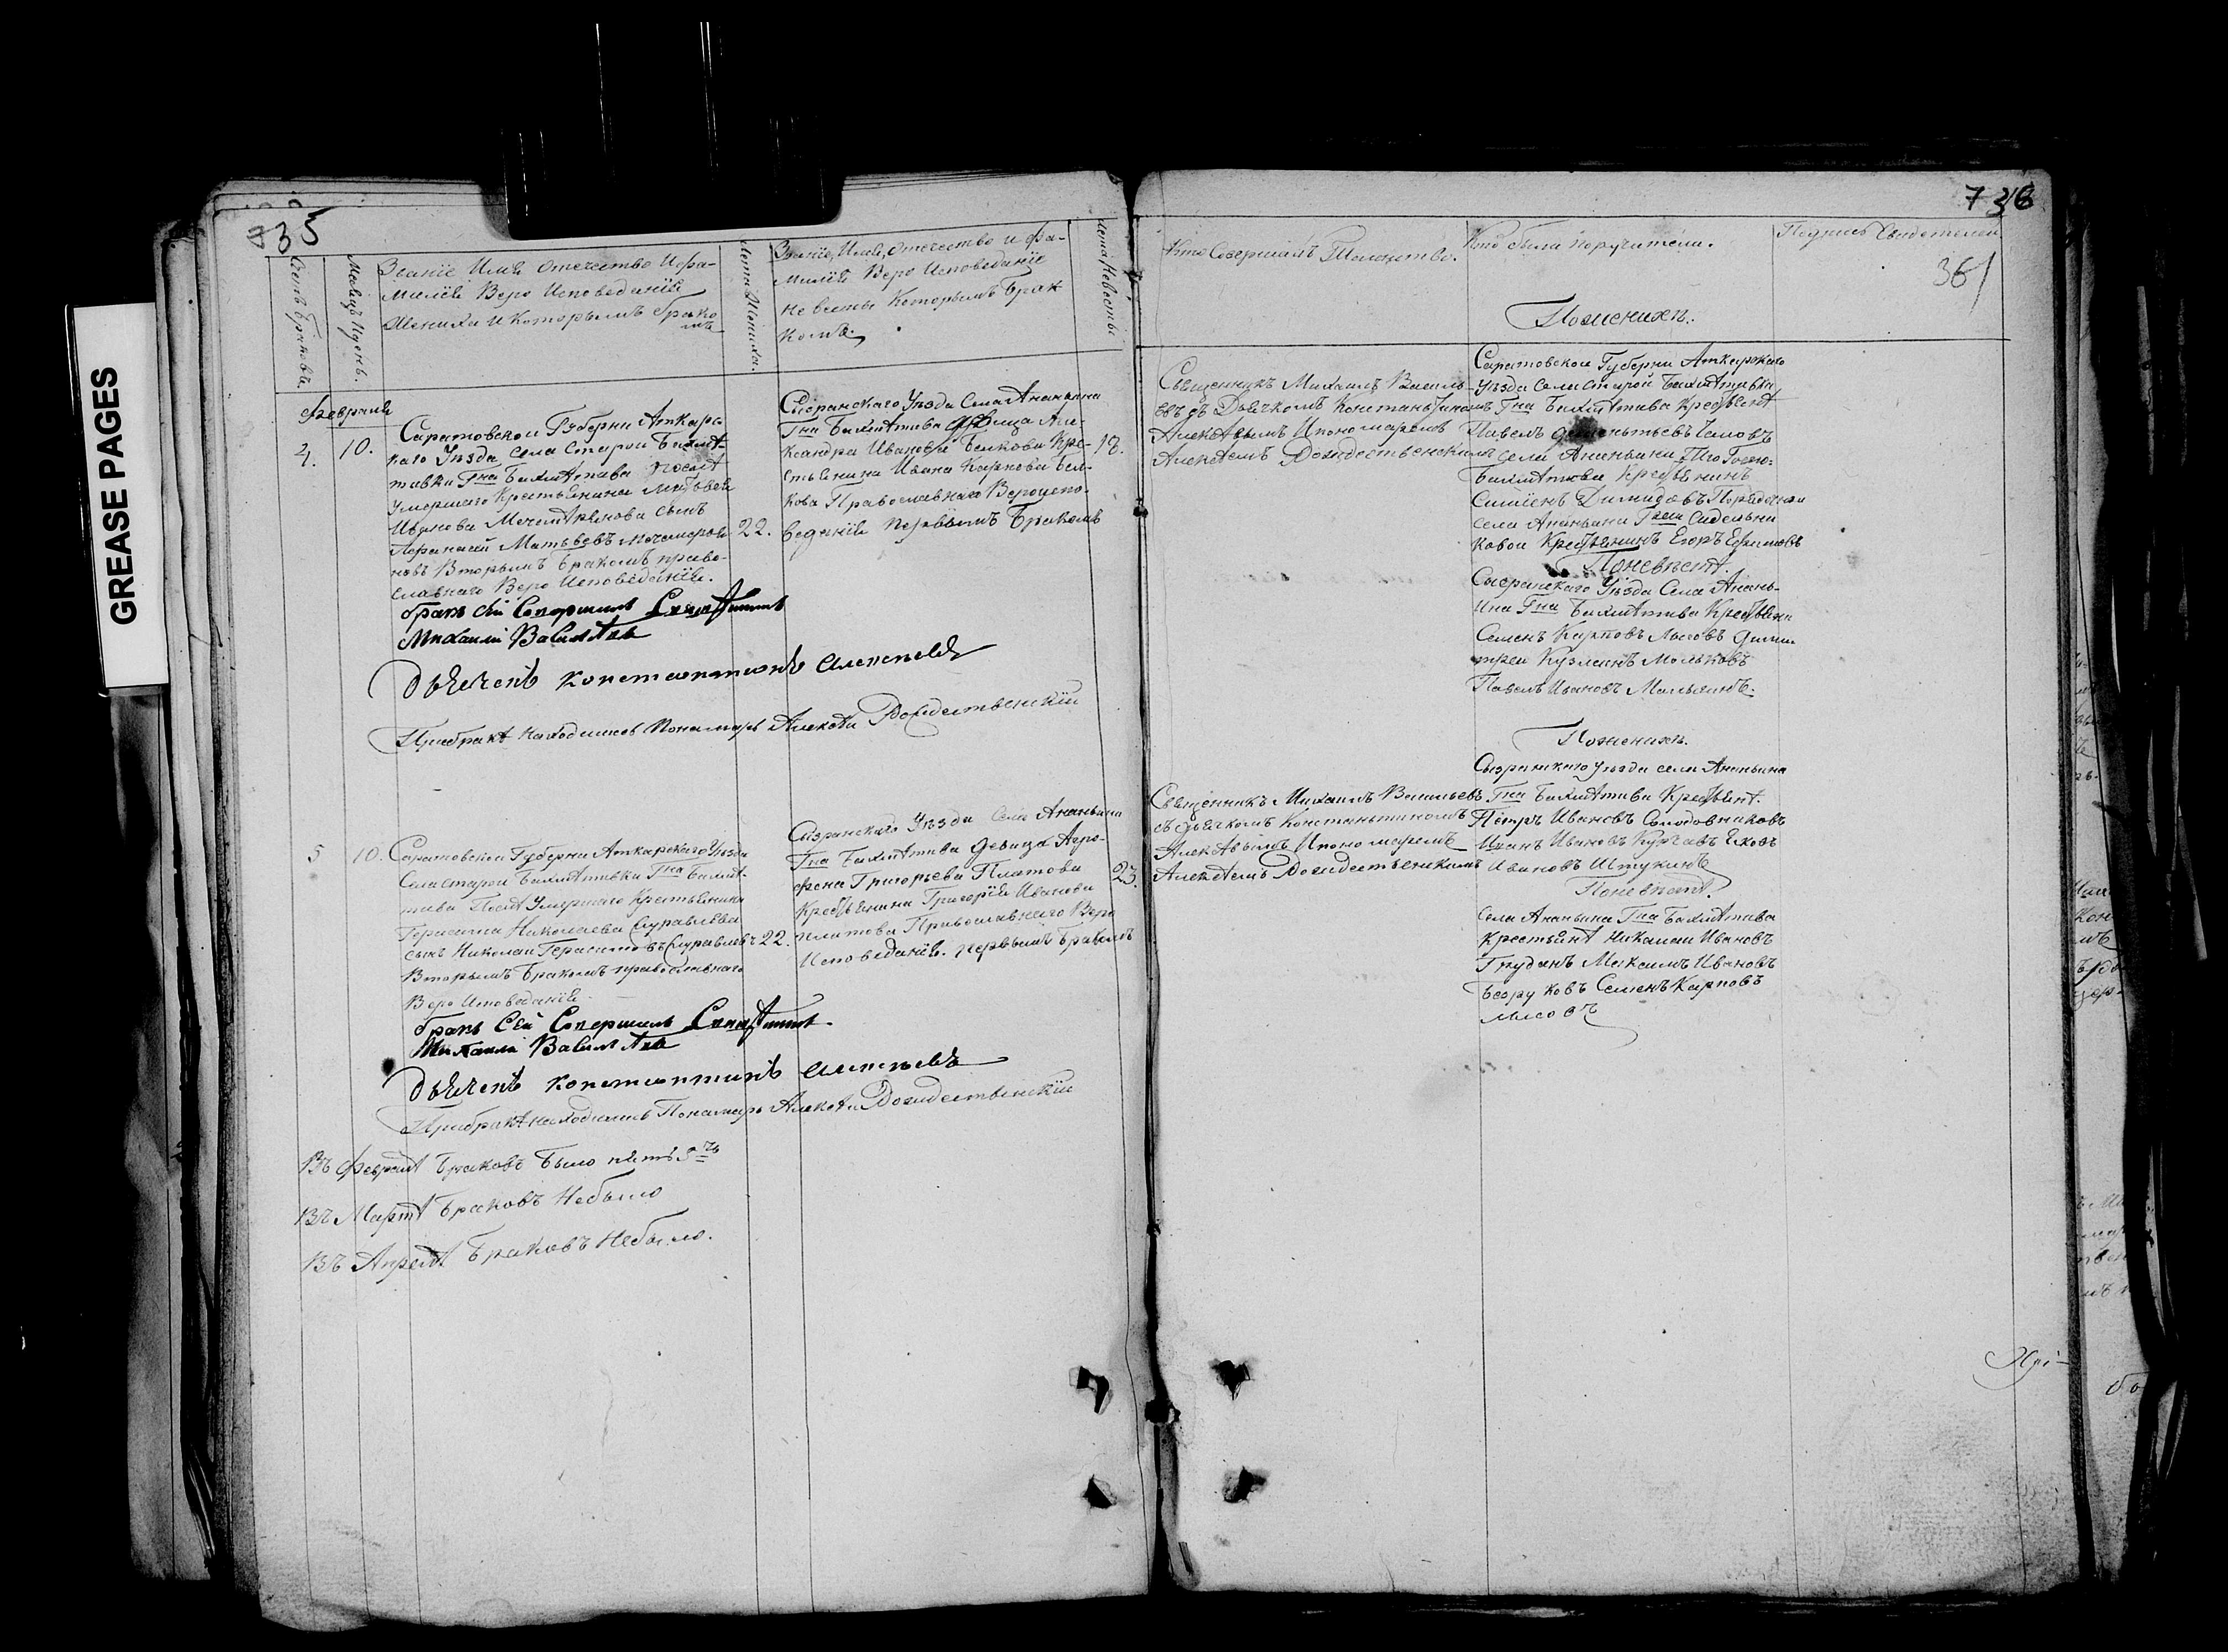 GREASE PAGES
735
Счетъ браковъ.
Месяцъ и день.
Званіе Имя Отечество и фа-
милія Веро Исповеданія
Жениха и Которымъ брако
мъ
Лета Жениха.
Званіе, Имя, Отечество и фа-
милія Веро Исповеданіе
невесты Которымъ брак
комъ.
Лета Невесты
Февраля
4. 10.
Саратовской Губерни Аткарс-
каго Уѣзда Села Старой Бахмѣ-
тивки Гна Бахмѣтива послѣ
умершаго Крестьянина Матвея
Иванова сынъ
Афанасий Матьвевъ
22.
Вторымъ бракомъ право-
славнаго Веро Исповеданія.
Сызранскаго Уѣзда Села Ананьина
Гна Бахмѣтива девица Але-
ксандра Иванова Белкова Кре-
18.
стьянина Ивана Карпова Бел-
кова Православнаго Вероиспо-
веданія первымъ бракомъ
бракъ сей Совершилъ Священникъ
Михаилъ Васильевъ
Дьячекъ Константинъ Алексѣевъ
При бракѣ находился Пономарь Алексѣи Рождественскіи
5 10.
Саратовской Губерни Аткарскаго Уѣзда
Села старой Бахмѣтивки Гна Бахмѣ-
тива Послѣ Умершаго Крестьянина
Герасима Николаева Журавлева
сынъ Николаи Герасимовъ Журавлевъ 22.
Вторымъ бракомъ православнаго
Веро Исповеданія
Сызранскаго Уѣзда Села Ананьина
Гна Бахмѣтива девица Агро-
фена Григорьева Платова
23.
Крестьянина Григорія Иванова
Платова Православнаго Веро
Исповеданія. первымъ бракомъ
бракъ Сей Совершилъ Священникъ
Михаилъ Васильевъ
Дьячекъ Константинъ Алексѣевъ
При бракѣ находился Пономарь Алексѣи Рождественскіи
Въ Февралѣ браковъ было пять 5ть
Въ Мартѣ браковъ Небыло
Въ Апрелѣ браковъ Небыло.
736
361
Кто Совершалъ Таинство.
Кто были поручители.
Подпись Свидетелей
Священникъ Михаилъ Василь-
евъ съ Дьячкомъ Константиномъ
Алексѣвымъ и пономаремъ
Алексѣемъ Рождественскимъ
По женихѣ.
Саратовской Губерни Аткарскаго
Уѣзда Села Старой Бахмѣтивки
Гна Бахмѣтива Крестьянѣ
Павелъ
села Ананьина
Бахмѣтива Крестьянинъ
Димидовъ
села Ананьина
Крестьянинъ Егоръ Ефимовъ
По невѣстѣ.
Сызранскаго Уѣзда Села Анань-
ина Гна Бахмѣтива Крестьяни
Семенъ Карповъ Лысовъ Дими-
трей Кузминъ Мольковъ
Павелъ Ивановъ
По женихѣ.
Сызранскаго Уѣзда села Ананьина
Гна Бахмѣтива Крестьянѣ.
Петръ Ивановъ Солодовниковъ
Иванъ Ивановъ Яковъ
Ивановъ Штукинъ
По невѣстѣ.
Священникъ Михаилъ Васильевъ
съ дьячкомъ Константиномъ
Алексѣвымъ и пономаремъ
Алексѣемъ Рождественскимъ
Села Ананьина Гна Бахмѣтива
Крестьянѣ Николаи Ивановъ
Максимъ Ивановъ
Семенъ Карповъ
Лысовъ